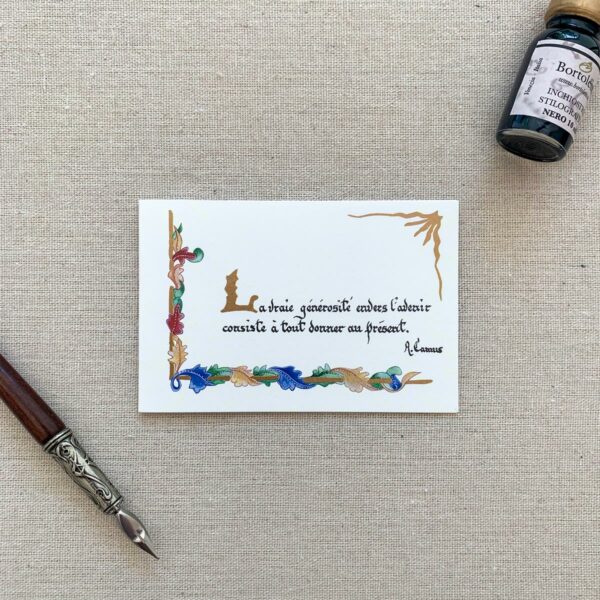 La vraie générosité envers l'avenir
consiste à tout donner au présent.
A. Camus
Venezia - Italia
NERO